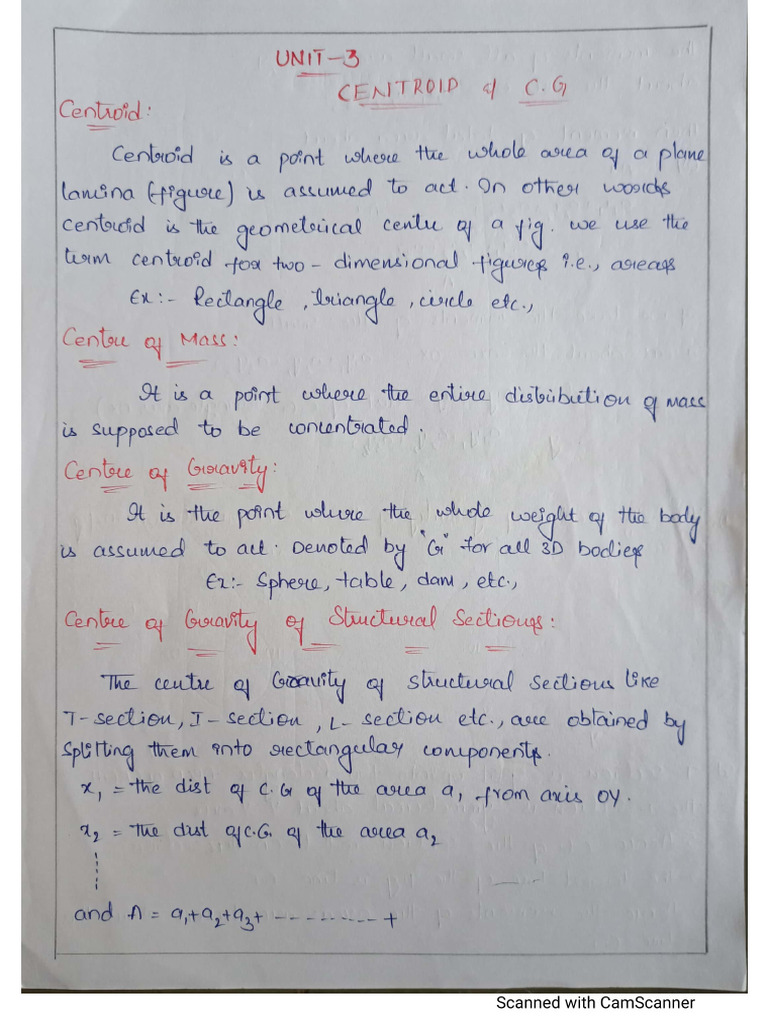 UNIT-3
CENTROID & C.G
Centroid:
Centroid is a point where the whole area of a plane
lamina (figure) is assumed to act. In other words
centroid is the geometrical centre of a fig. we use the
term centroid for two-dimensional figures i.e., areas
Ex:- Rectangle, triangle, circle etc.,
Centre of Mass:
It is a point where the entire distribution of mass
is supposed to be concentrated.
Centre of Gravity:
It is the point where the whole weight of the body
is assumed to act. Denoted by "G" for all 3D bodies
Ex:- Sphere, table, dam, etc.,
Centre of Gravity of Structural Sections:
The centre of Gravity of structural sections like
T-section, I-section, L-section etc., are obtained by
splitting them into rectangular components.
x₁ = the dist of C.G of the area a₁ from axis OY.
x₂ = The dist of C.G. of the area a₂
and A = a₁+a₂+a₃+ --------- +
Scanned with CamScanner